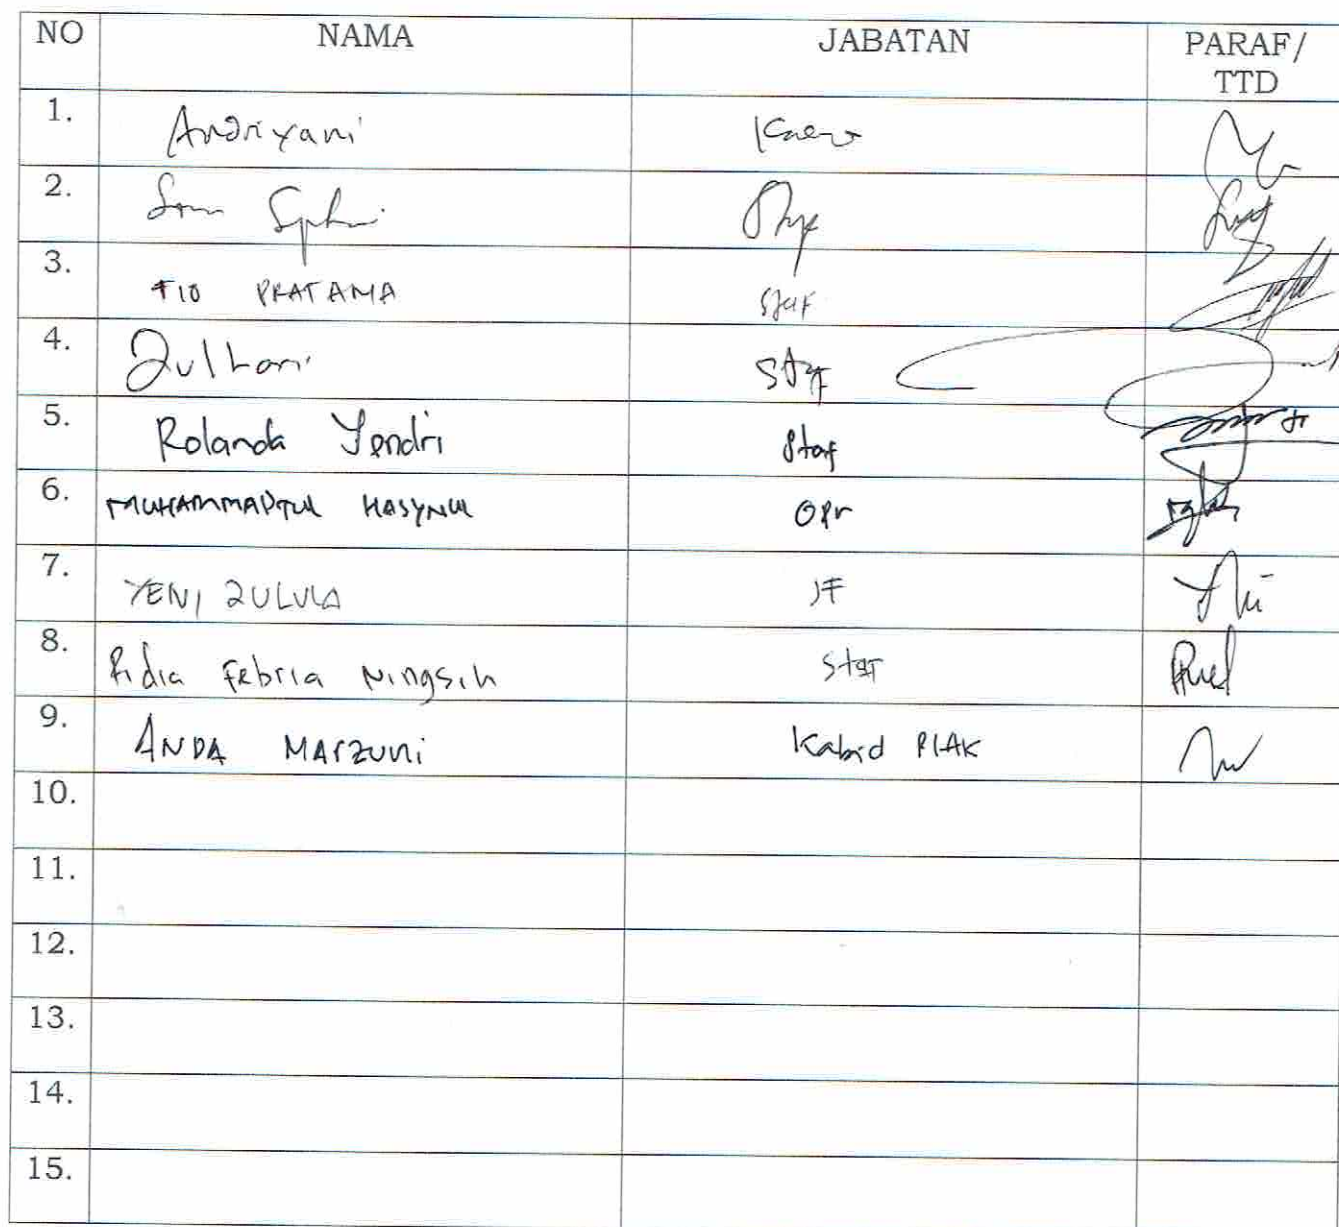 NO NAMA JABATAN PARAF/
TTD
1. Andriyani
2.
3. TIO PRATAMA Staf
4. Zulhani Staf
5. Rolanda Yendri Staf
6. HASYNUL Opr
7. YENI ZULVIA JF
8. Ridia Febria Ningsih Staf
9. ANDA MARZUNI Kabid PIAK
10.
11.
12.
13.
14.
15.